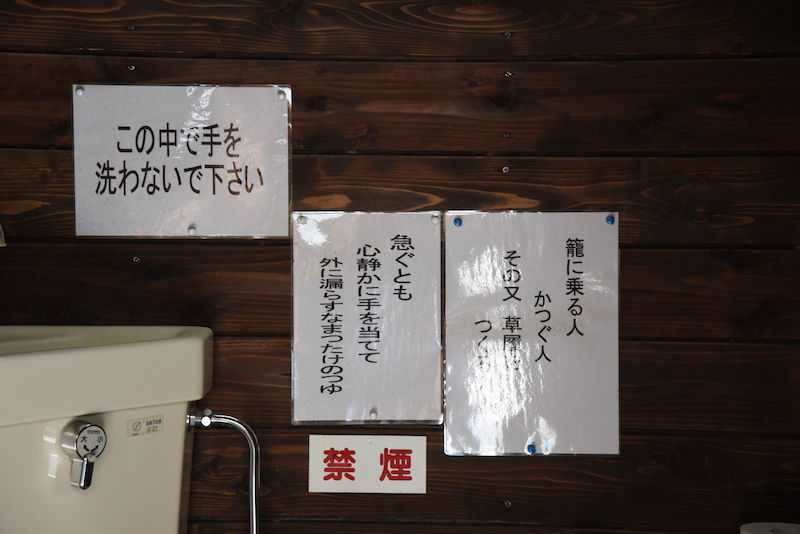 この中で手を
洗わないで下さい
急ぐとも
心静かに手を当てて
外に漏らすなまつたけのつゆ
籠に乗る人
かつぐ人
その又 草履
つく
禁 煙
大 小